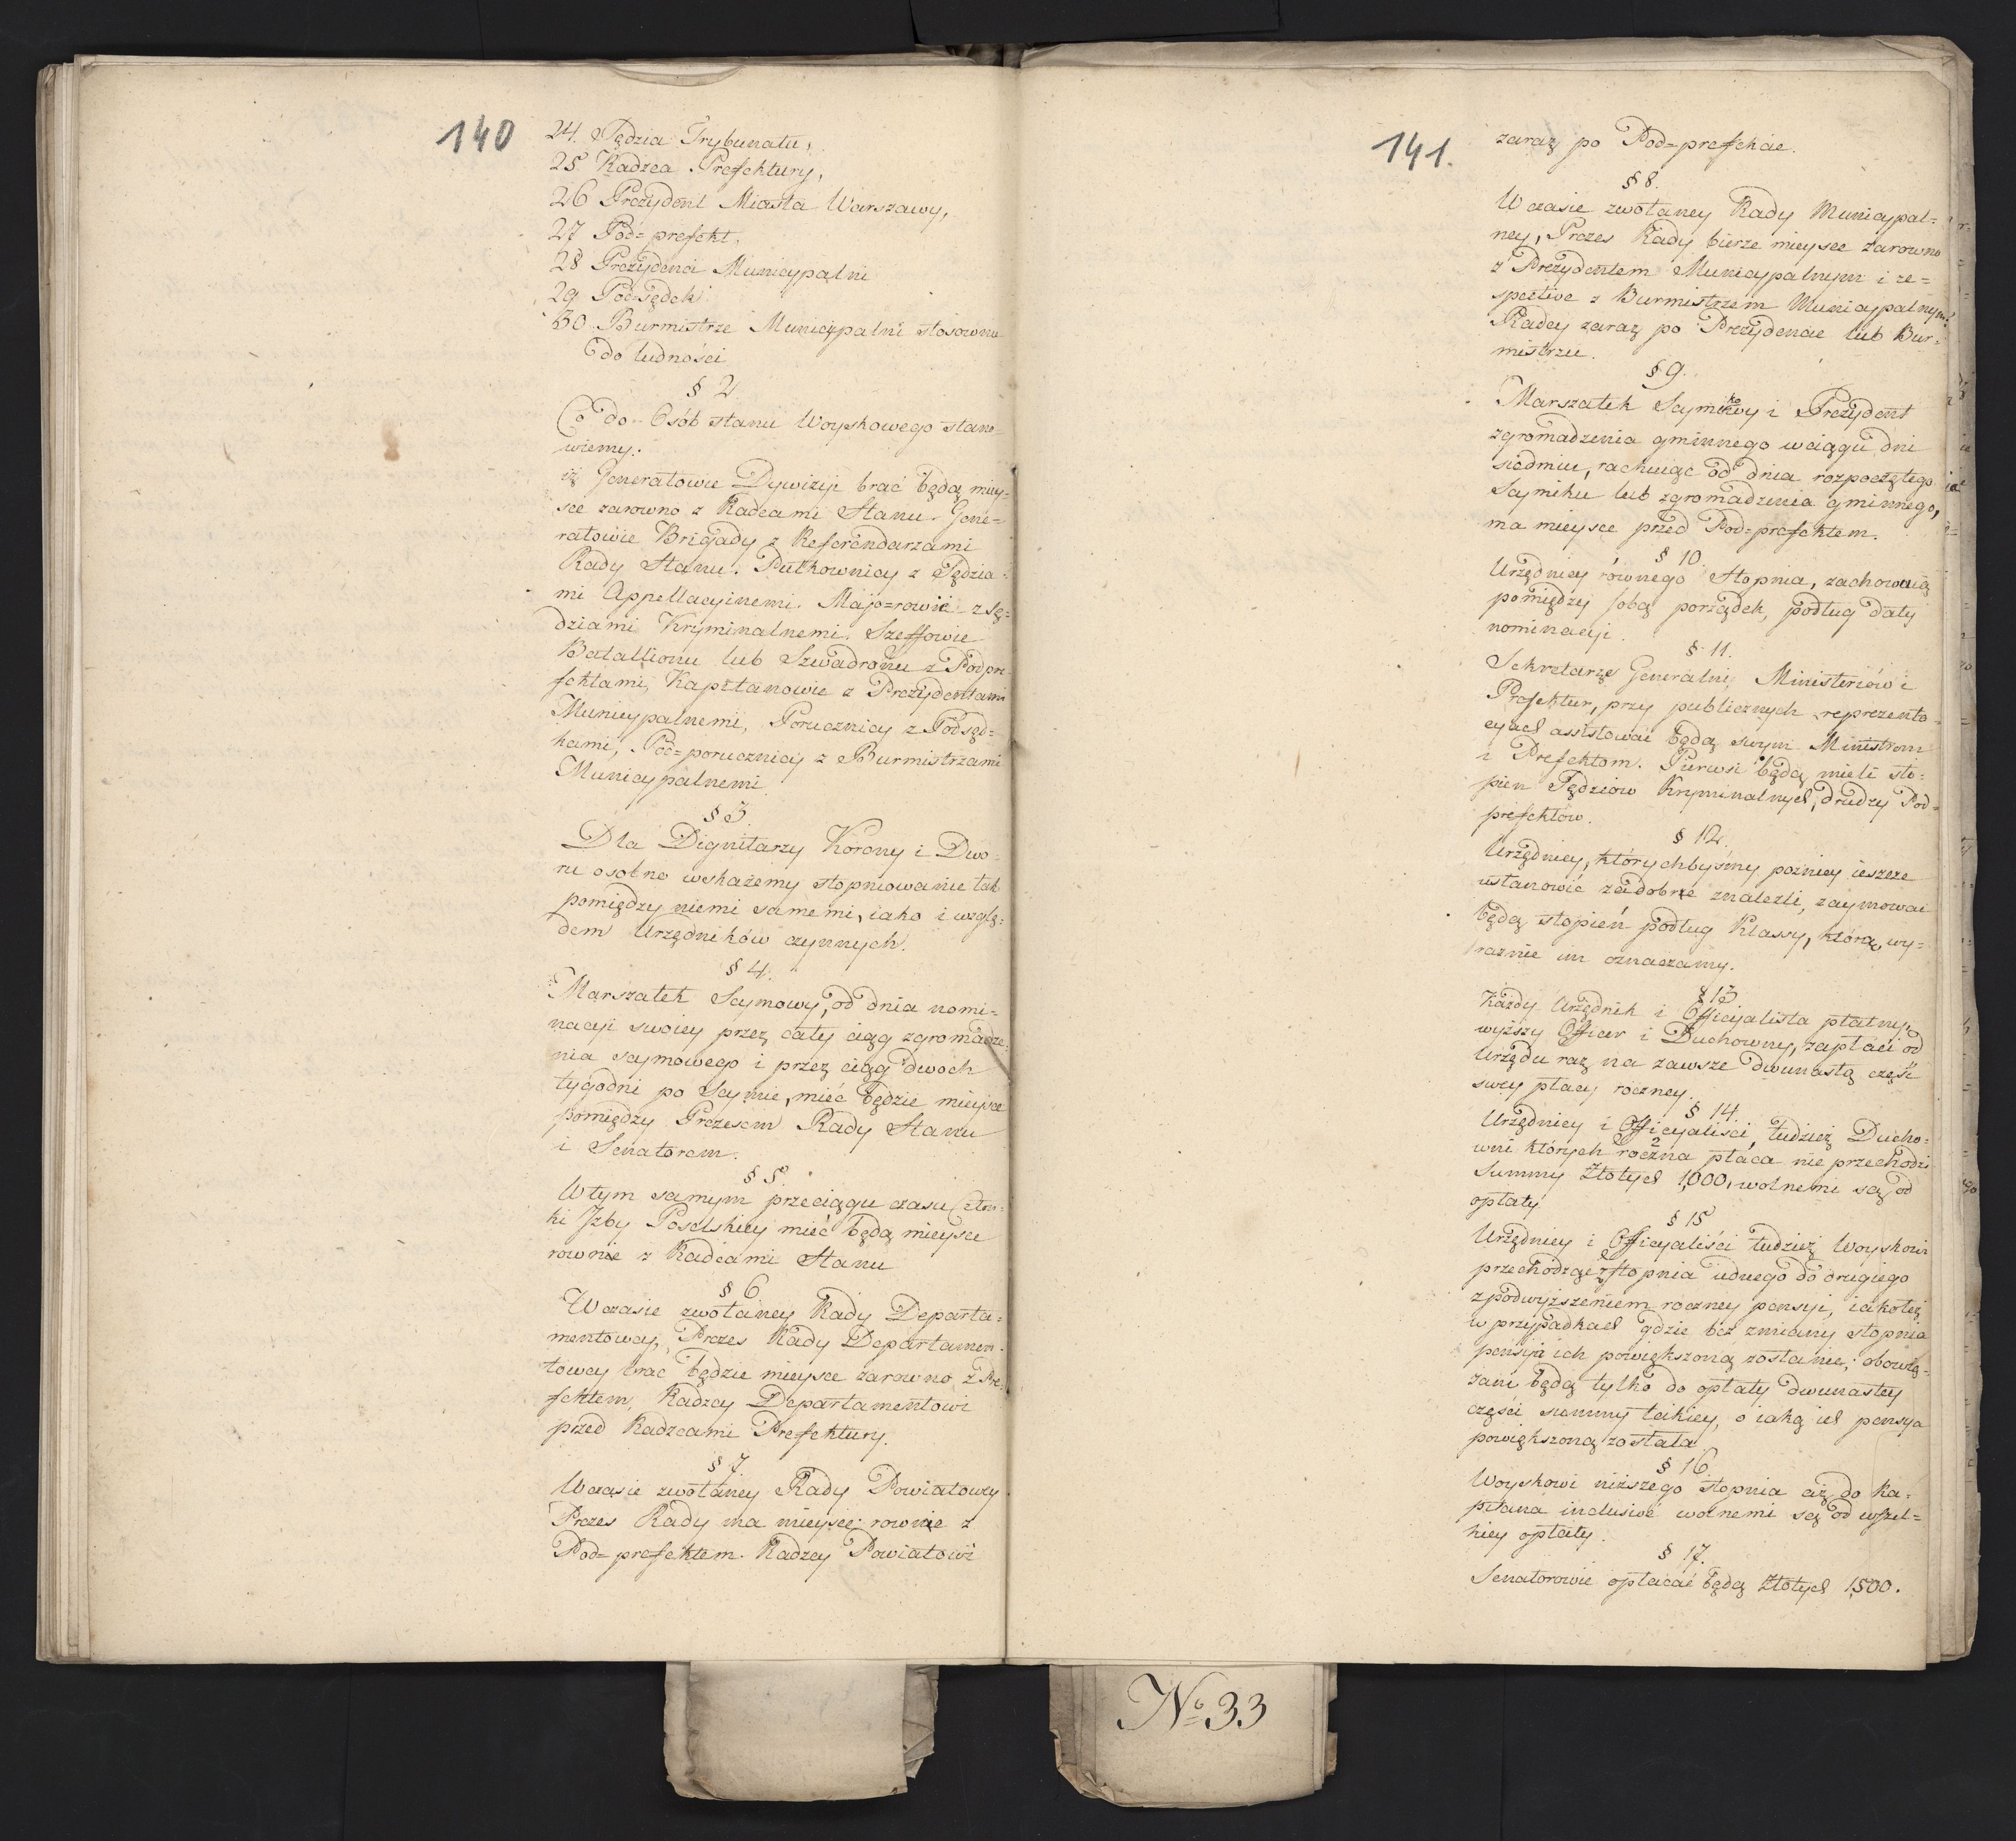 140
24. Sędzia Trybunału,
25 Radzca Prefektury,
26 Prezydent Miasta Warszawy,
27 Pod=prefekt,
28 Prezydenci Municypalni
29 Pod=sędek
30 Burmistrze Municypalni stosownie
do ludności
§ 2
Co do Osób stanu Woyskowego stano=
wiemy.
iż Generałowie Dywizyi brać będą miey=
sce zarowno z Radcami Stanu. Gene=
rałowie Brigady z Referendarzami
Rady Stanu. Pułkownicy z Sędzia=
mi Appellacyinemi. Major=rowie z Sę=
dziami Kryminalnemi. Szeffowie
Batallionu lub Szwadronu z Podpre=
fektami, Kapitanowie z Prezydentami
Municypalnemi, Porucznicy z Podsęd=
kami, Pod=porucznicy z Burmistrzami
Municypalnemi
§ 3.
Dla Dignitarzy Korony i Dwo=
ru osobno wskażemy stopniowanie tak
pomiędzy niemi samemi, iako i wzglę=
dem Urzędników czynnych.
§ 4.
Marszałek Seymowy, od dnia nomi=
nacyi swoiey przez cały ciąg zgromadze=
nia seymowego i przez ciąg dwoch
tygodni po Seymie, mieć będzie mieysce
pomiędzy Prezesem Rady Stanu
i Senatorem.
§ 5.
W tym samym przeciągu czasu Człon=
ki Jzby Poselskiey mieć będą mieysce
rownie z Radcami Stanu
§ 6
W czasie zwołaney Rady Departa=
mentowey, Prezes Rady Departamen=
towey brac będzie mieysce zarowno z Pre=
fektem, Radzcy Departamentowi
przed Radzcami Prefektury.
§ 7
W czasie zwołaney Rady Powiatowey
Prezes Rady ma mieysce rownie z
Pod=prefektem. Radzcy Powiatowi
141.
zaraz po Pod=prefekcie.
§ 8.
W czasie zwołaney Rady Municypal=
ney, Prezes Rady bierze mieysce zarowno
z Prezydentem Municypalnym i re=
spective z Burmistrzem Municypalnym.
Radcy zaraz po Prezydencie lub Bur=
mistrzu.
§ 9.
Marszałek Seymikowy i Prezydent
zgromadzenia gminnego w ciągu dni
siedmiu, rachuiąc od dnia rozpoczętego
Seymiku lub zgromadzenia gminnego,
ma mieysce przed Pod=prefektem.
§ 10.
Urzędnicy równego Stopnia, zachowuią
pomiędzy sobą porządek, podług daty
nominacyi.
§ 11.
Sekretarze Generalni, Ministeriów i
Prefektur, przy publicznych reprezenta=
cyach assistować będą swym Ministrom
i Prefektom. Pierwsi będą mieli sto=
pien Sędziow Kryminalnych, drudzy Pod=
prefektów.
§ 12.
Urzędnicy, którychbyśmy poźniey ieszcze
ustanowić za dobrze znalezli, zaymować
będą stopień podług Klassy, którą wy=
raźnie im oznaczamy.
§ 13
Każdy Urzędnik i Officyalista płatny,
wyższy Officer i Duchowny, zapłaci od
Urzędu raz na zawsze dwunastą część
swey płacy roczney.
§ 14.
Urzędnicy i Officyaliści, tudzież Ducho=
wni których roczna płaca nie przechodzi
Summy Złotych 1,000, wolnemi są od
opłaty
§ 15
Urzędnicy i Officyaliści tudzież Woyskowi
przechodzące z Stopnia iednego do drugiego
z podwyższeniem roczney pensyi, iakoteż
w przypadkach gdzie bez zmiany stopnia
pensya ich powiększoną zostanie, obowią=
zani będą tylko do opłaty dwunastey
części summy takiey, o iaką ich pensya
powiększoną została
§ 16.
Woyskowi niższego stopnia aż do Ka=
pitana inclusivé wolnemi są od wszel=
kiey opłaty.
§ 17.
Senatorowie opłacać będą Złotych 1,500.
No 33